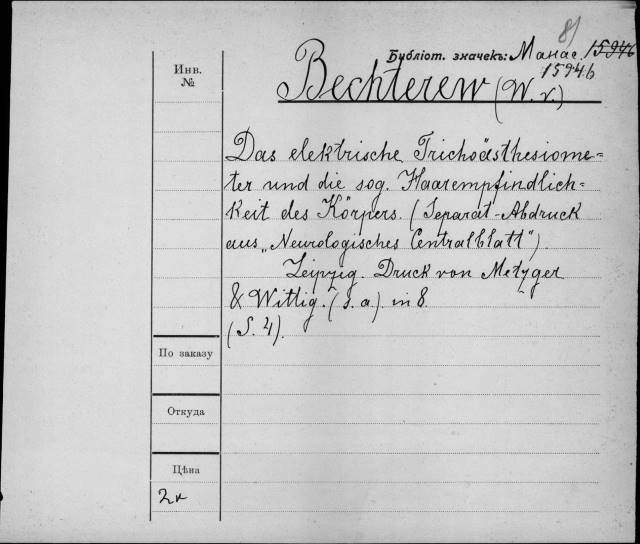 81
Библіот. значекъ: Манас. 15946
15946
Инв.
№
Bechterew (W. v.)
Das elektrische Trichoästhesiome=
ter und die sog. Haarempfindlich=
keit des Körpers. (Separat-Abdruck
aus „Neurologisches Centralblatt“).
Leipzig. Druck von Metzger
& Wittig. (s. a.) in 8.
(S. 4).
По заказу
Откуда
Цѣна